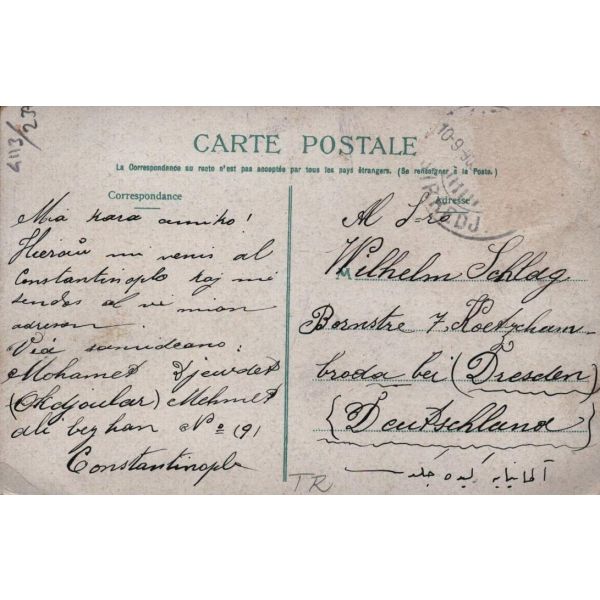 2113/23
CARTE POSTALE
La Correspondance au recto n'est pas acceptée par tous les pays étrangers. (Se renseigner à la Poste.)
Correspondance
Mia kara amiko!
Hieraŭ mi venis al
Constantinoplo kaj mi
sendas al vi mian
adreson.
Via samideano:
Mohamed Djewdet
(Okdjoular) Mehmet
ali bey han No 191
Constantinople
Adresse
10-9-
Al S-ro
Wilhelm Schlag
Bornstre 7. Koetzscham-
broda bei (Dresden)
(Deutschland)
TR